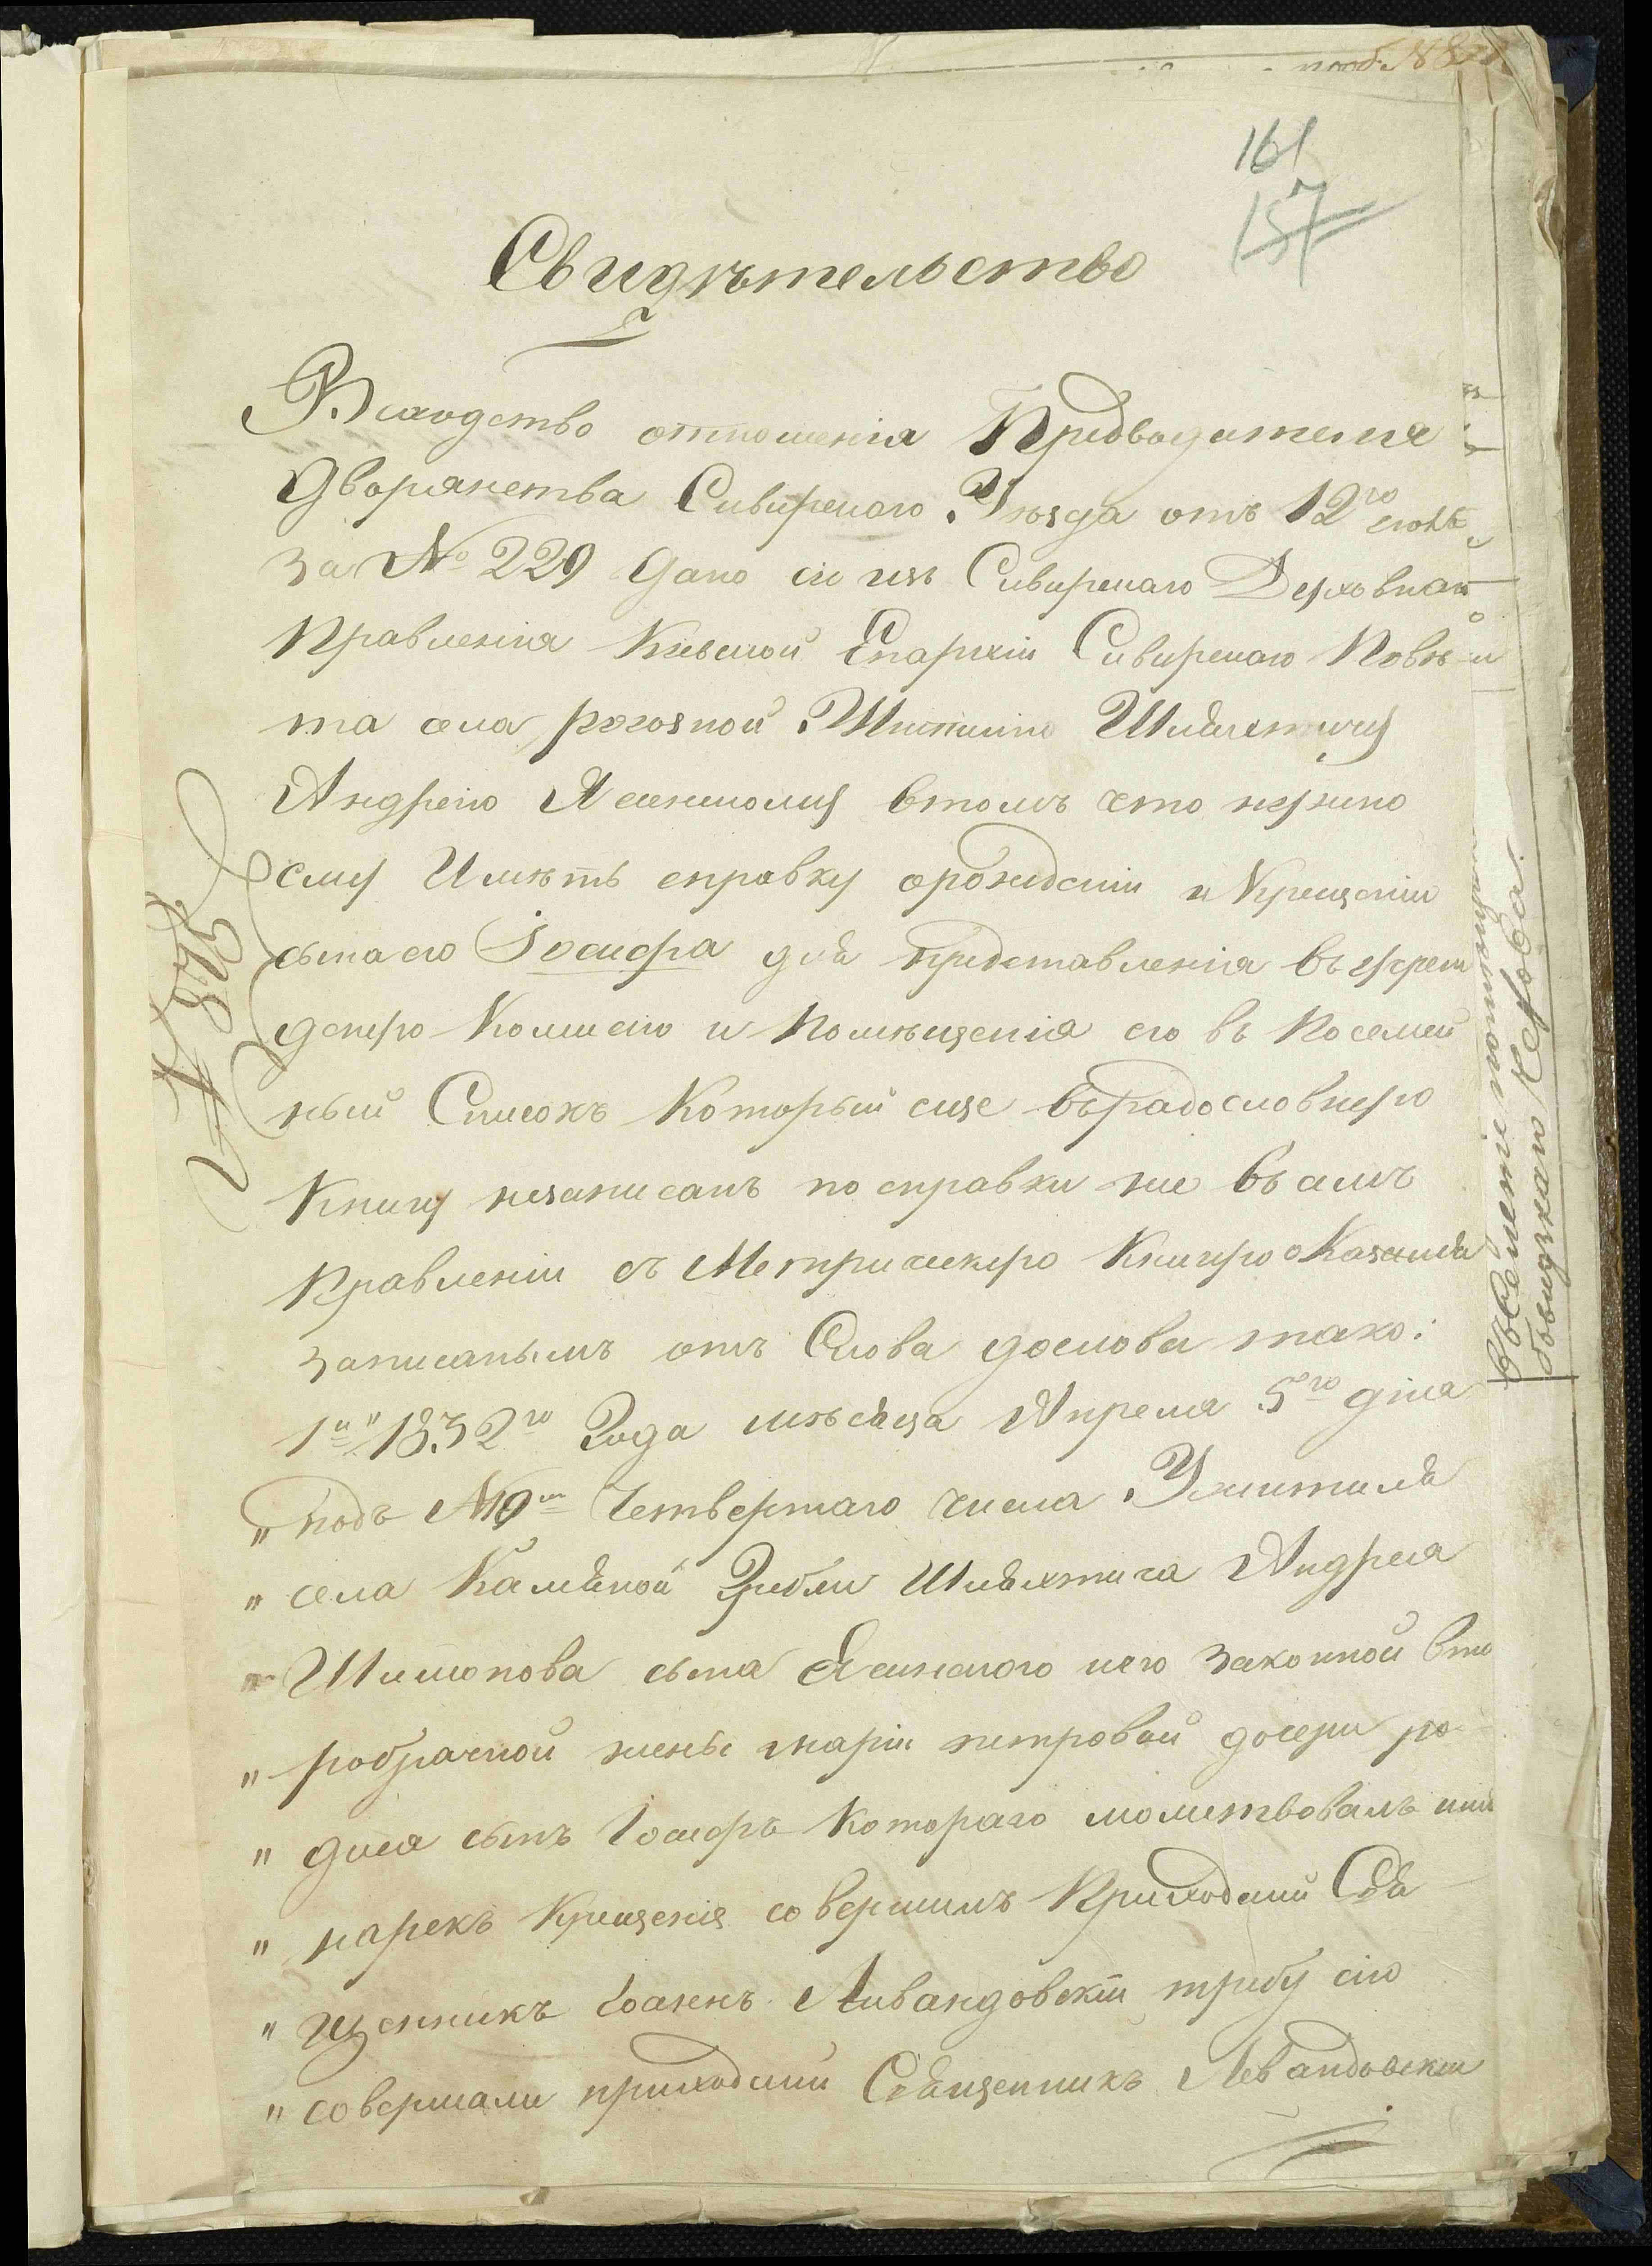 161
157
Свидѣтельство
Вслѣдство отношенія Предводителя
дворянства Сквирского Уѣзда отъ 12го
за № 229 Дано сіе изъ Сквирскаго Духовнаго
Правленія Кіевской Епархіи Сквирскаго Повѣ
та села рогозной Шляхтичу
Андрею Ясенскому втомъ что нужно
ему Имѣть справку орождении и Крещении
сына его Іосифа для представленія въ
Комисію и Помѣщенія его въ Посемей
ный Списокъ Который еще въ радословную
Книгу незаписанъ по справки же въ семъ
Правленіи съ Метрическую Книгою Оказался
записанымъ отъ Слова дослова тако:
1й 1832го Года мѣсяца Апреля 5го дня
" подъ №9м Четвертаго числа Ужителя
" села Камяной Гребли Шляхтича Андрея
" Шимонова сына Ясинского иего законной вто
" робрачной жены маріи петровой дочери ро
" дился сынъ Іосифъ Котораго молитвовалъ имя
" нарекъ Крещенія совершилъ Приходский Свя
" щенникъ Іоаннъ Ливандовскій требу сію
" совершали приходский Священникъ Левандовский
№ 873